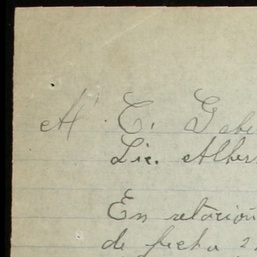 Al C. Gabe
Lic. Alber
En relación
de fecha 2